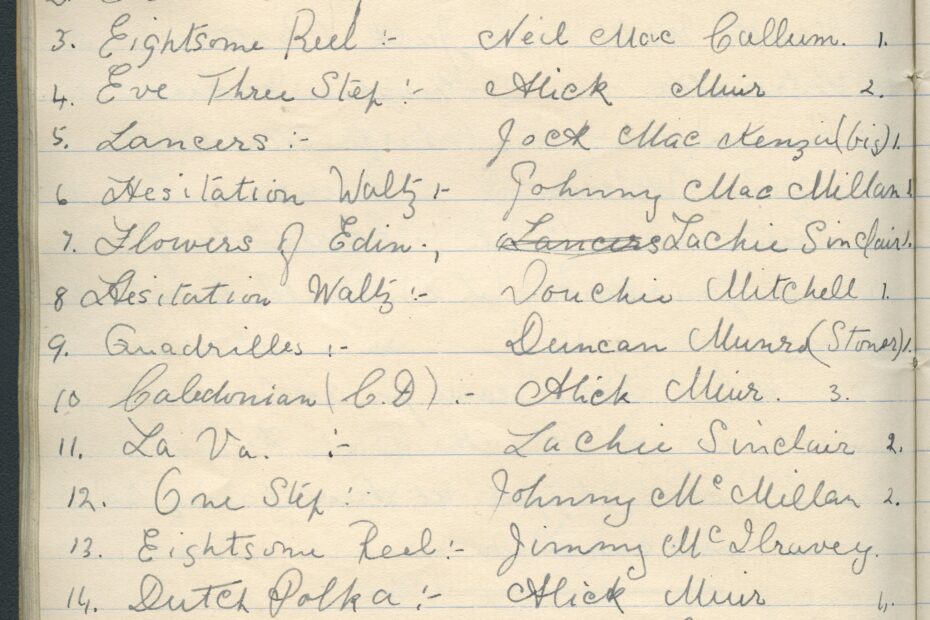 3. Eightsome Reel :- Neil Mac Callum. 1.
4. Eve Three Step :- Alick Muir 2.
5. Lancers :- Jock Mac Kenzie (big) 1.
6 Hesitation Waltz :- Johnny Mac Millan 1.
7. Flowers of Edin., Lancers Lachie Sinclair 1.
8 Hesitation Waltz :- Douchie Mitchell 1.
9. Quadrilles :- Duncan Munro (Stoner) 1.
10 Caledonian (C.D) :- Alick Muir. 3.
11. La Va. :- Lachie Sinclair 2.
12. One Step :- Johnny Mc Millan 2.
13. Eightsome Reel :- Jimmy Mc
14. Dutch Polka :- Alick Muir 4.